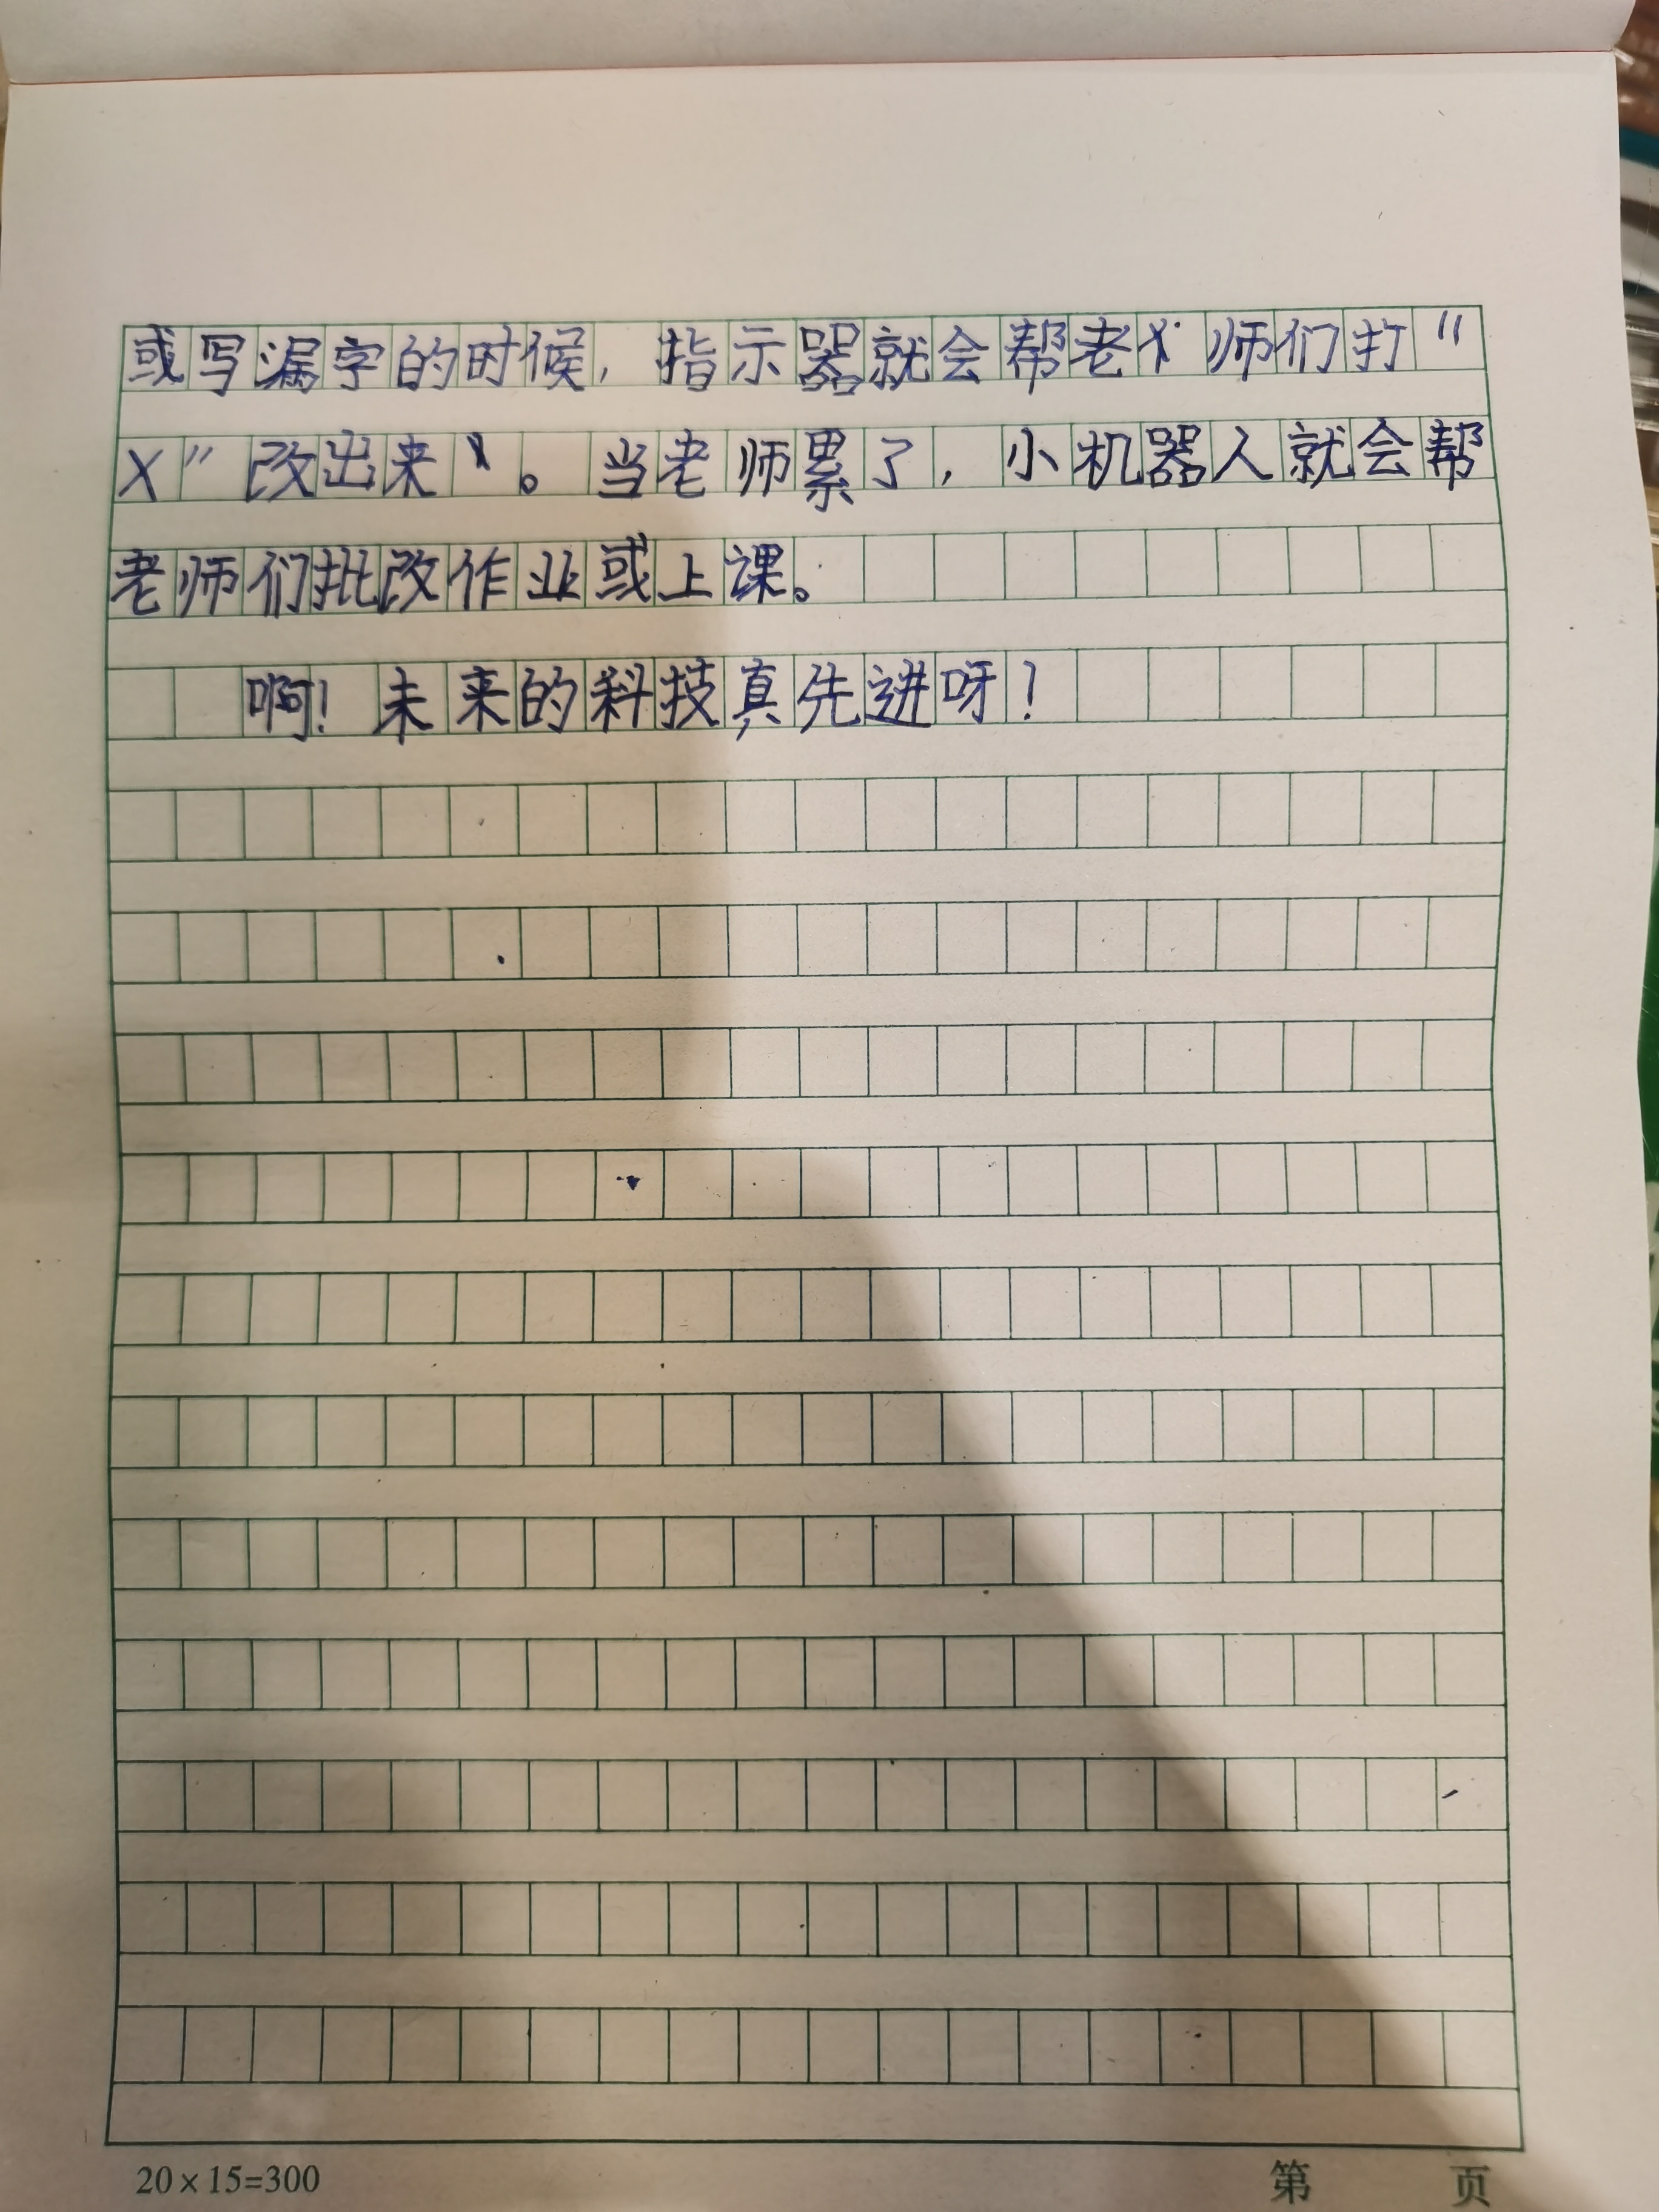 或写漏字的时候，指示器就会帮老师们打“
X”改出来。当老师累了，小机器人就会帮
老师们批改作业或上课。
啊！未来的科技真先进呀！
20×15=300
第 页